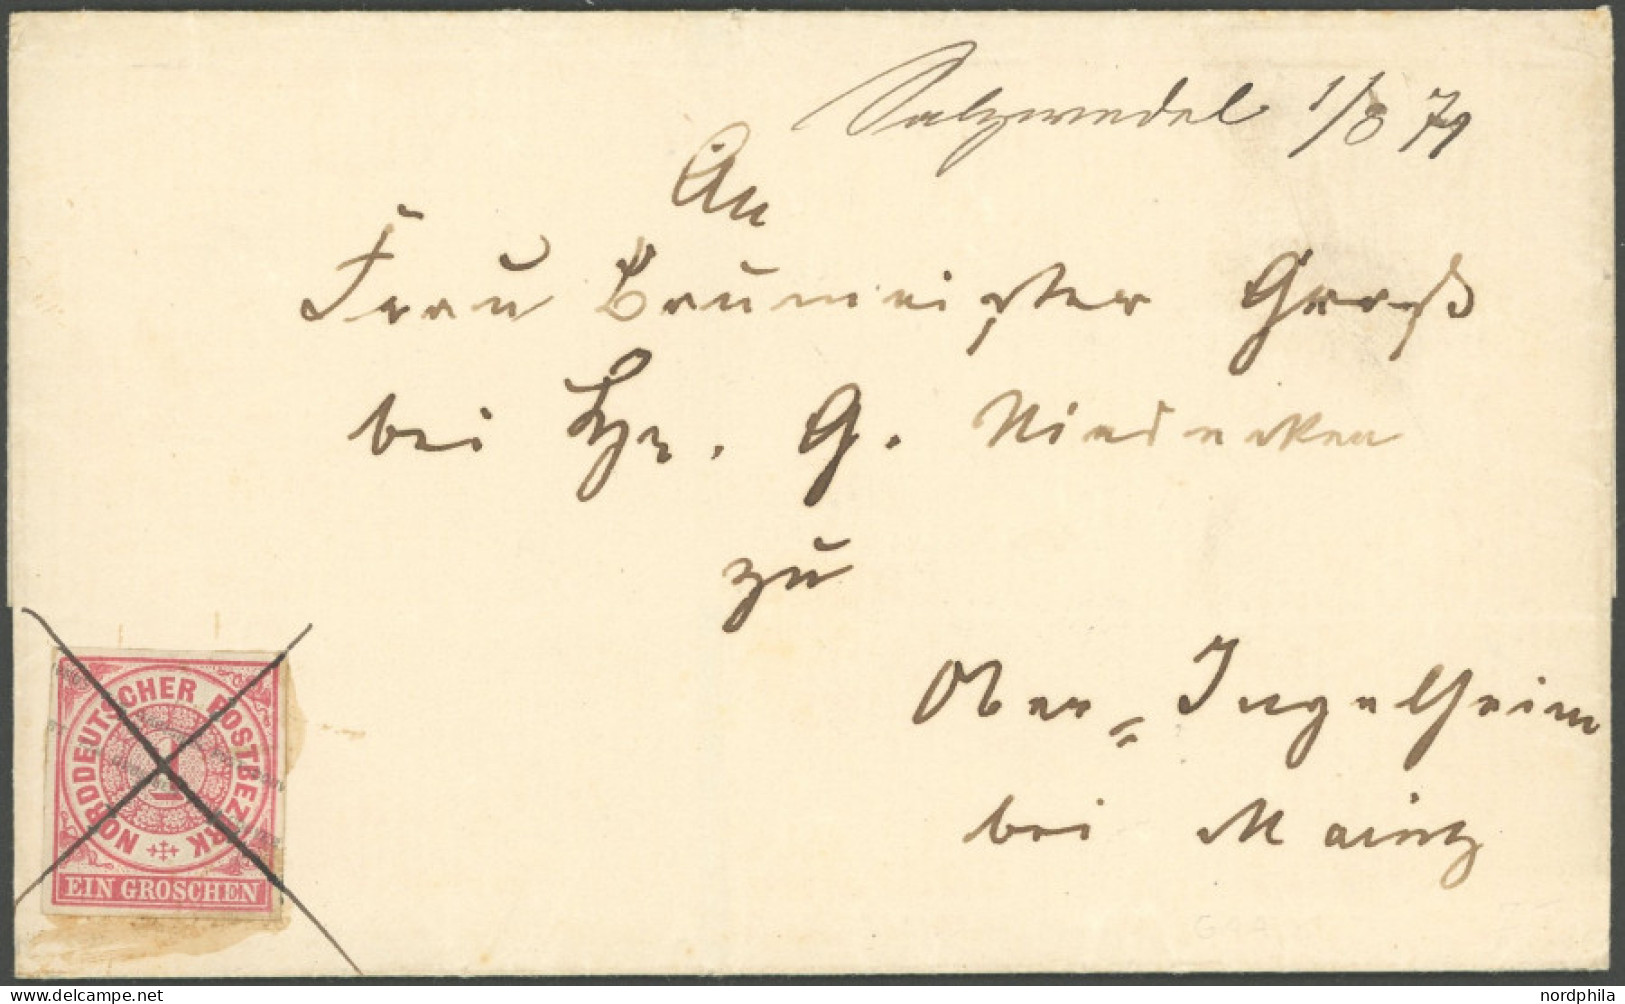 Salzwedel 1/8 71
An
Frau Baumeister Groß
bei Hr. G.
zu
Ober=Ingelheim
bei Mainz
NORDDEUTSCHER POSTBEZIRK
1
EIN GROSCHEN
delcampe.net
nordphila